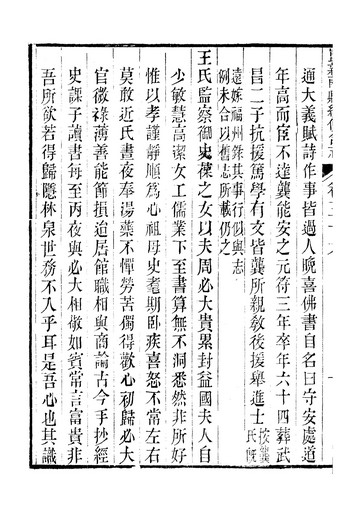 通大義賦詩作事皆過人晩喜佛書自名曰守安處道
年高而宦不達龔能安之元符三年卒年六十四葬武
昌二子抗援篤學有文皆龔所親敎後援舉進士按龔氏旣
遠嫁福州錄其事行似與志例未合以舊志所載仍之
王氏監察御史葆之女以夫周必大貴累封益國夫人自
少敏慧高潔女工儒業下至書算無不洞悉然非所好
惟以孝謹靜順爲心祖母史耄期臥疾喜怒不常左右
莫敢近氏晝夜奉湯藥不憚勞苦獨得歡心初歸必大
官微祿薄善能節損迨居館職相與商論古今手抄經
史課子讀書每至丙夜與必大相敬如賓常言富貴非
吾所欲若得歸隱林泉世務不入乎耳是吾心也其識